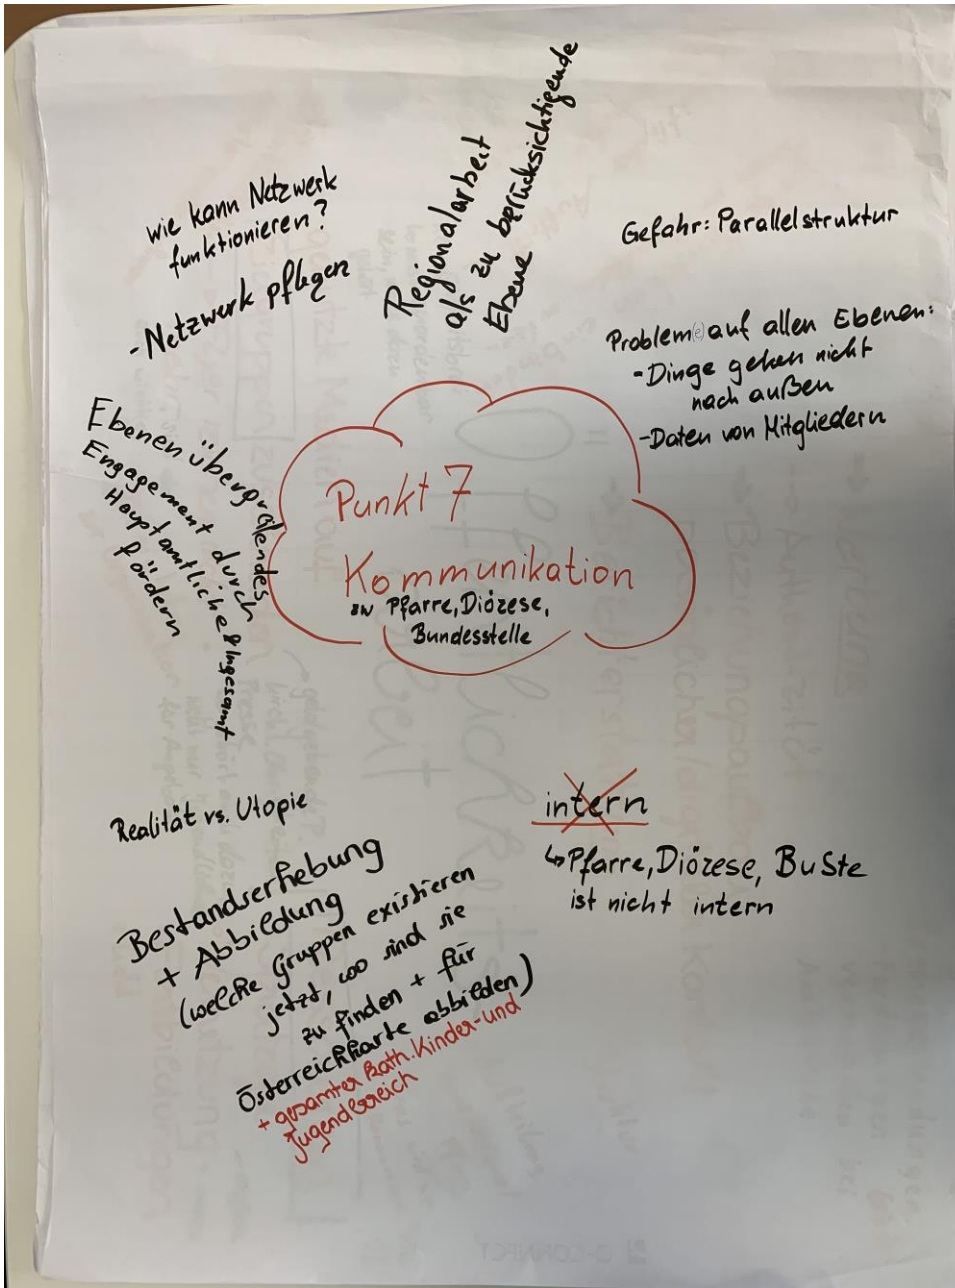 wie kann Netzwerk
funktionieren?
- Netzwerk pflegen
Regionalarbeit
als zu berücksichtigende
Ebene
Gefahr: Parallelstruktur
Problem(e) auf allen Ebenen:
- Dinge gehen nicht
nach außen
- Daten von Mitgliedern
Ebenenübergreifendes
Engagement durch
Hauptamtliche & Ingesamt
fördern
Punkt 7
Kommunikation
in Pfarre, Diözese,
Bundesstelle
Realität vs. Utopie
Bestandserhebung
+ Abbildung
(welche Gruppen existieren
jetzt, wo sind sie
zu finden + für
Österreichkarte abbilden)
+ gesamter kath. Kinder- und
Jugendbereich
intern
↳ Pfarre, Diözese, BuSte
ist nicht intern